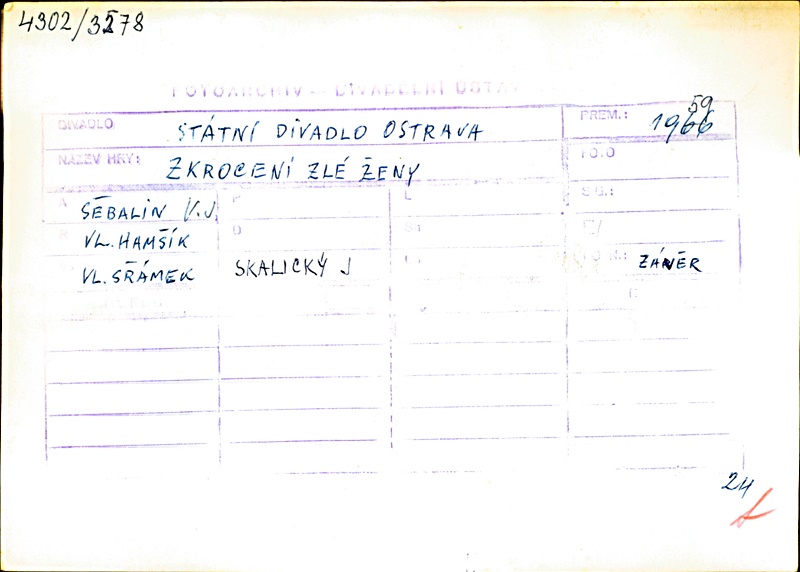 4302/3578
FOTOARCHIV — DIVADELNÍ ÚSTAV
DIVADLO STÁTNÍ DIVADLO OSTRAVA PREM.: 1966 59
NÁZEV HRY: ZKROCENÍ ZLÉ ŽENY
A ŠEBALIN V.J. P L S G.:
R VL. HAMŠÍK D S:
VL. SRÁMEK SKALICKÝ J ZÁVĚR
24